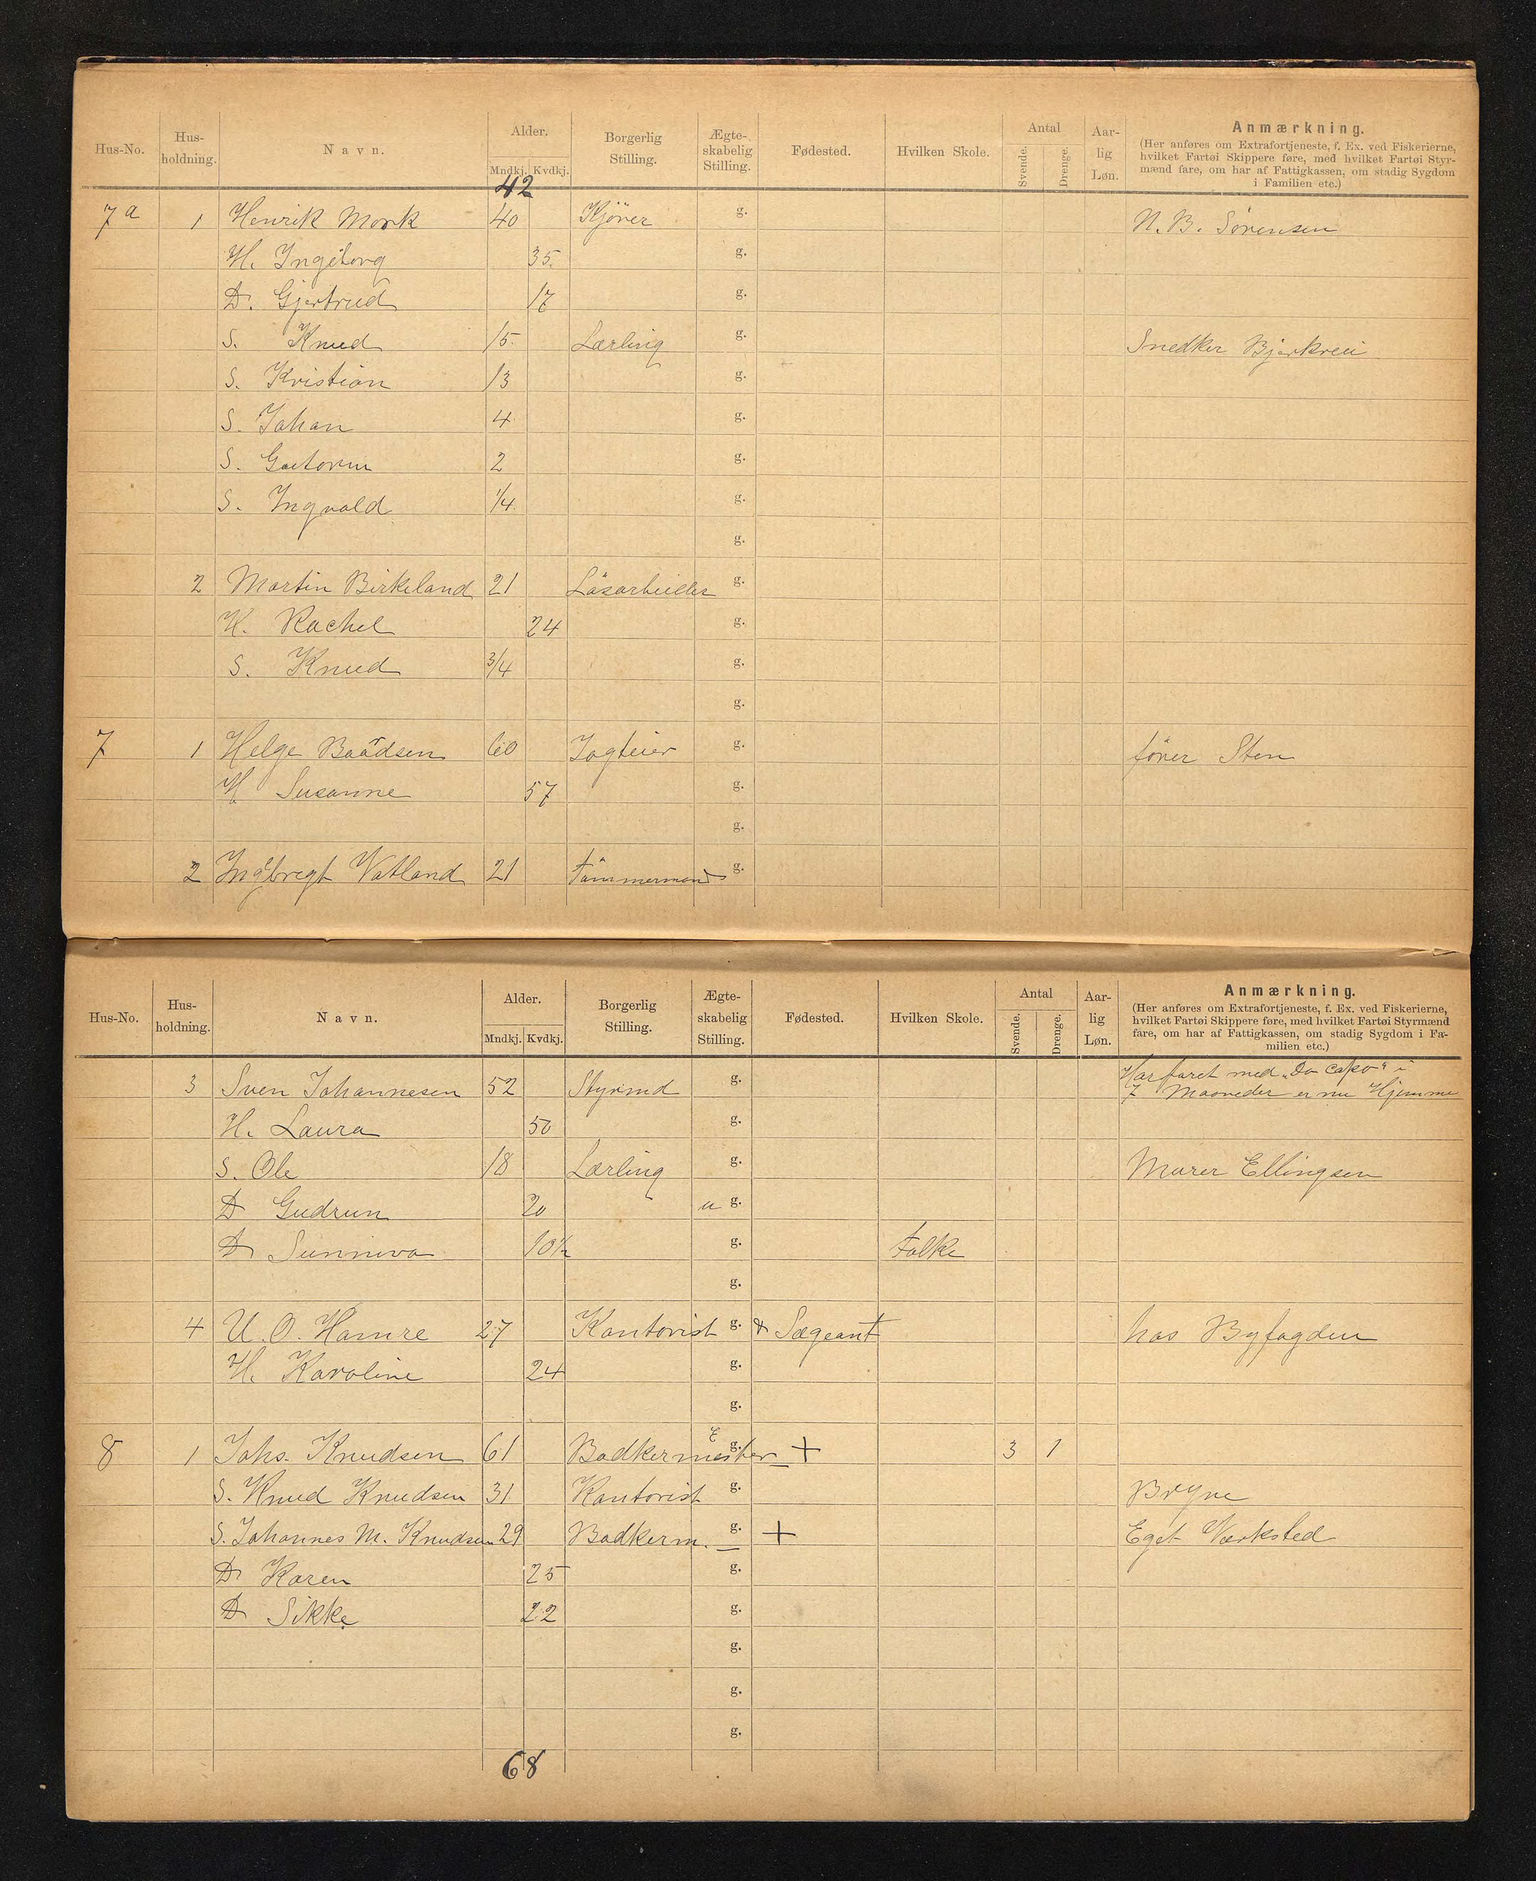 Hus-No. Hus-holdning. Navn. Alder. Mndkj. Kvdkj. Borgerlig Stilling. Ægte-skabelig Stilling. Fødested. Hvilken Skole. Antal Svende. Drenge. Aar-lig Løn. Anmærkning.
(Her anføres om Extrafortjeneste, f. Ex. ved Fiskerierne, hvilket Fartøi Skippere føre, med hvilket Fartøi Styr-mænd fare, om har af Fattigkassen, om stadig Sygdom i Familien etc.)
42
7a 1 Henrik Mork 40 Kjörer g. N. B. Sörensen
H. Ingeborg 35 g.
D. Gjertrud 17 g.
S. Knud 15 Lærling g. Snedker Bjerkrein
S. Kristian 13 g.
S. Johan 4 g.
S. 2 g.
S. Ingvald 1/4 g.
g.
2 Martin Birkeland 21 Lösarbeider g.
H. Rachel 24 g.
S. Knud 3/4 g.
g.
7 1 Helge Baadsen 60 Jagteier g. förer Sten
H Susanne 57 g.
g.
2 Ingebregt Vatland 21 Tömmermand g.
Hus-No. Hus-holdning. Navn. Alder. Mndkj. Kvdkj. Borgerlig Stilling. Ægte-skabelig Stilling. Fødested. Hvilken Skole. Antal Svende. Drenge. Aar-lig Løn. Anmærkning.
(Her anføres om Extrafortjeneste, f. Ex. ved Fiskerierne, hvilket Fartøi Skippere føre, med hvilket Fartøi Styrmænd fare, om har af Fattigkassen, om stadig Sygdom i Fa-milien etc.)
3 Sven Johannesen 52 Styrmd g. Har faret med "Da Capo" i
7 Maaneder er nu Hjemme
H. Laura 50 g.
S. Ole 18 Lærling g. Murer Ellingsen
D Gudrun 20 u g.
D Sunniva 10 1/2 g. Folke
g.
4 U. O. Hamre 27 Kontorist g. & Sægeant hos Byfogden
H. Karoline 24 g.
g.
8 1 Johs. Knudsen 61 Bödkermester E g. + 3 1
S. Knud Knudsen 31 Kontorist g. Bryne
S. Johannes M. Knudsen 29 Bödkerm. g. + Eget Værksted
D Karen 25 g.
D Sikke 22 g.
g.
g.
g.
68